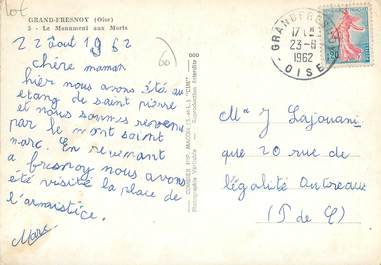 lot
GRAND-FRESNOY (Oise)
3 - Le Monument aux Morts
22 août 1962
60
chère maman
hier nous avons été au
etang de saint pierre
et nous sommes revenu
par le mont saint
marc. En revenant
a fresnoy nous avons
été visité la place de
l'armistice.
Marc
COMBIER IMP. MACON (S.-et-L.) "CIM"
Photographie Véritable - Reproduction Interdite
GRANDFRESNOY
17H
23-8
1962
OISE
Mr J Lajouani
que 20 rue de
légalité Outreau
(P de C)